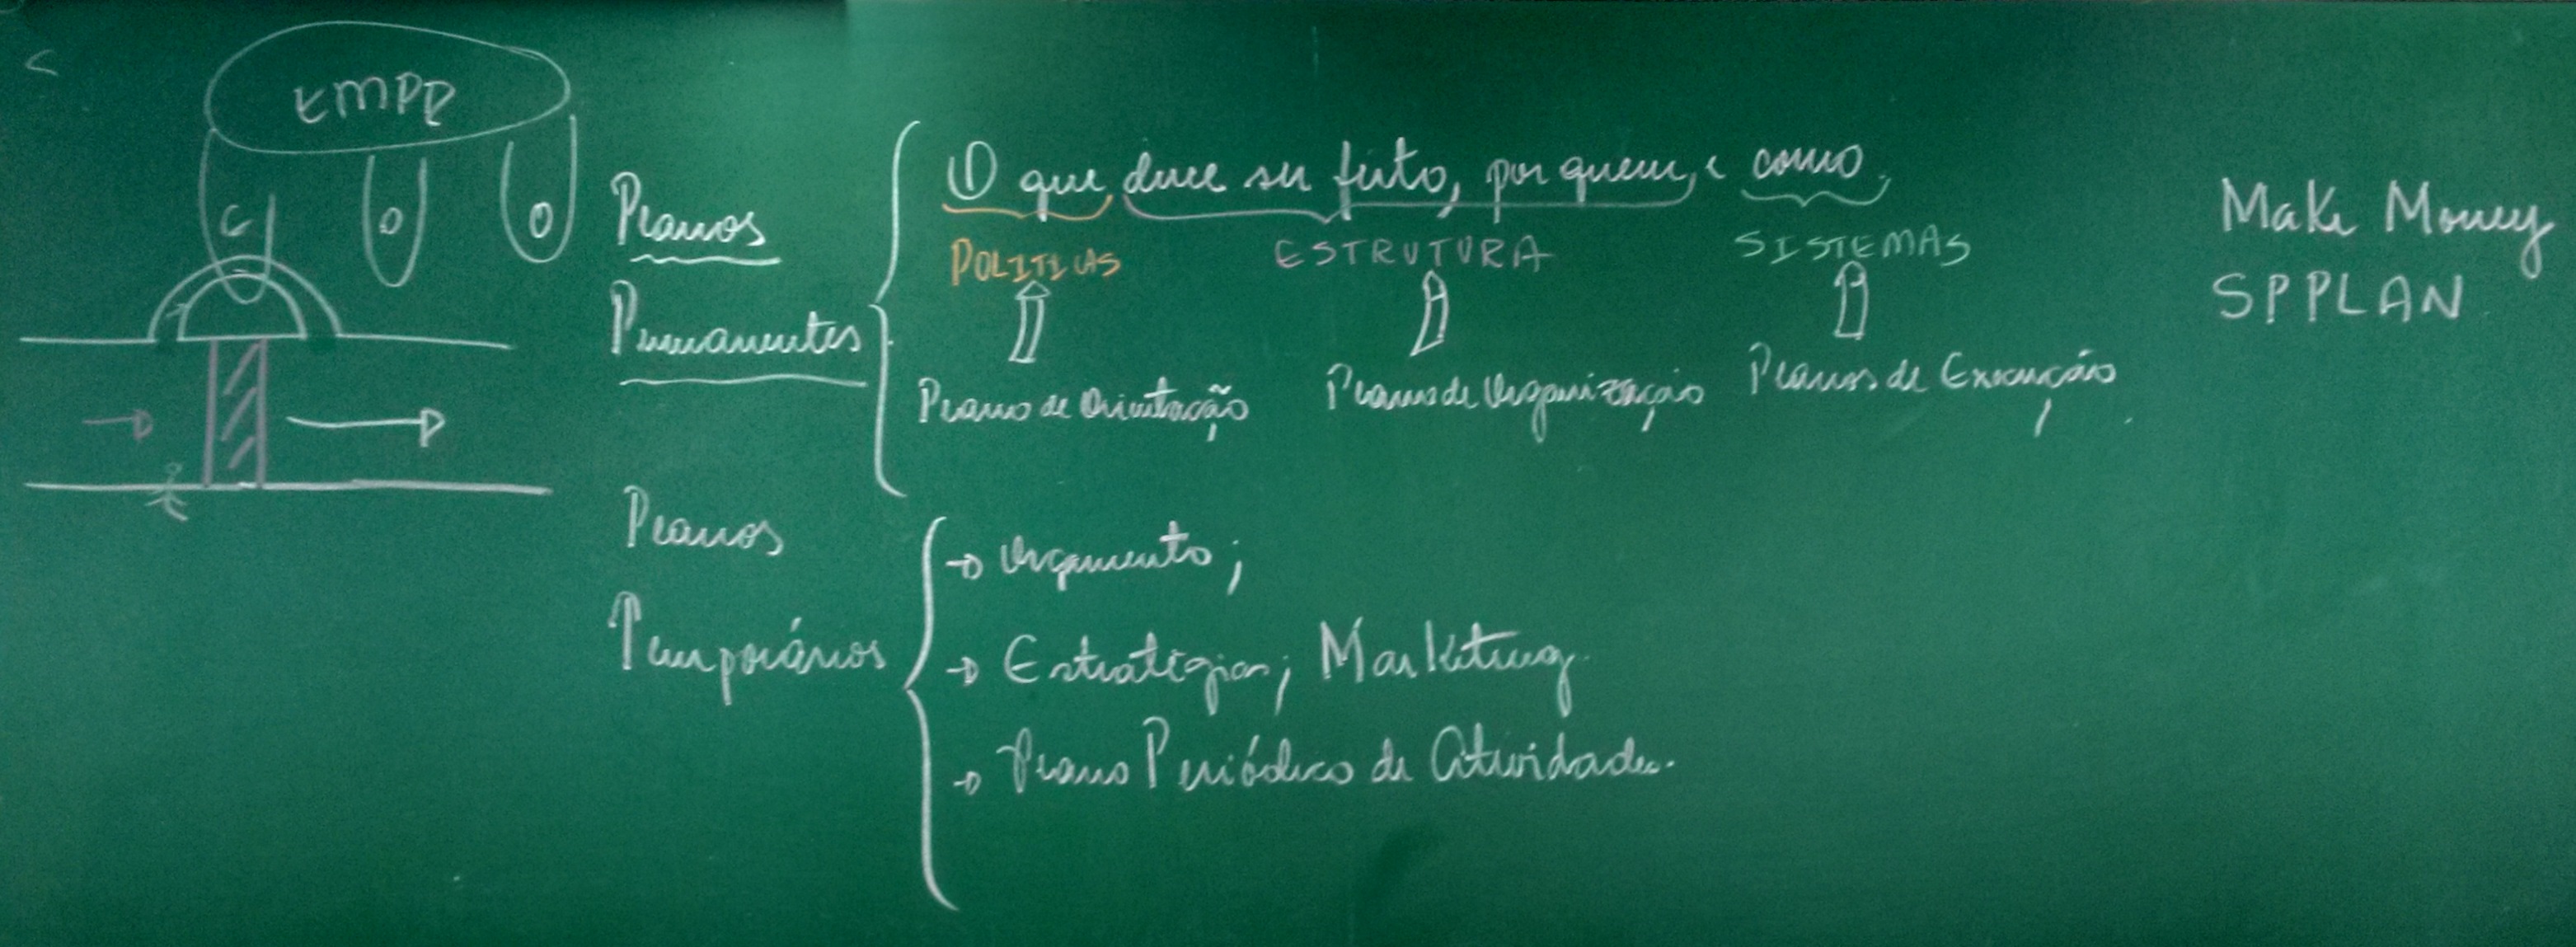 EMPR
C
O
O
Planos
Permanentes
O que deve ser feito, por quem, e como.
POLITICAS ESTRUTURA SISTEMAS
Plano de Orientação Planos de Organização Planos de Execução
Make Money
SPPLAN
Planos
Temporários
→ Orçamento;
→ Estratégias; Marketing.
→ Plano Periódico de Atividades.